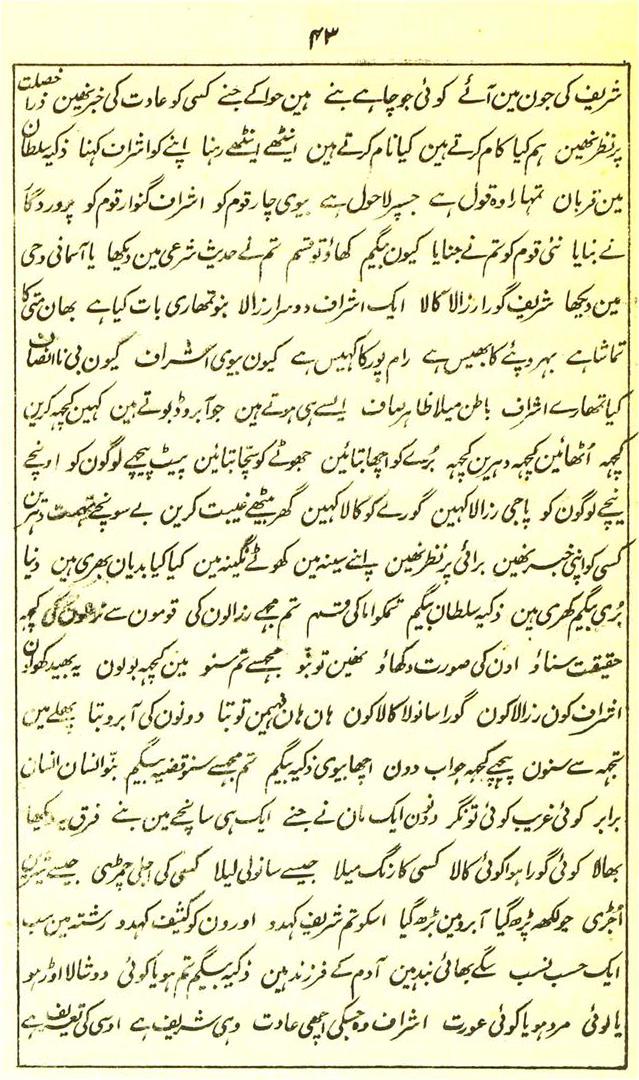 ۴۳
شریف کی جون مین آئے کوئی جو چاہے بنے ہین حوا کے جنے کسی کو عادت کی خبر نہین ذرا خصلت
پر نظر نہین ہم کیا کام کرتے ہین کیا نام کرتے ہین اینٹھے اینٹھے رہنا اپنے کو اشراف کہنا ذکیہ سلطان
مین قربان تمہارا وہ قول ہے جسپر لاحول ہے بیوی چار قوم کو اشراف گنوار قوم کو پروردگار
نے بنایا نئی قوم کو تم نے جنایا کیون بیگم کھاؤ تو قسم تم نے حدیث شرعی مین دیکھا یا آسمانی وحی
مین دیکھا شریف گورا رزالا کالا ایک اشراف دوسرا رزالا بنو تمھاری بات کیا ہے بھان متی کا
تماشا ہے بہروپئے کا بھیس ہے رام پور کا کہیس ہے کیون بیوی اشراف کیون بی نا انصاف
کیا تمھارے اشراف باطن میلا ظاہر صاف ایسے ہی ہوتے ہین جو آبرو ڈبوتے ہین کہین کچہہ کرین
کچہہ اُٹھائین کچہہ دہرین کچہہ بُرے کو اچھا بتائین جھوٹے کو سچّا بتائین پیٹ پیچہے لوگون کو اونچے
نیچے لوگون کو پاجی رزالا کہین گورے کو کالا کہین گھر بیٹھے غیبت کرین بے سونچے تہمت دہرین
کسی کو اپنی خبر نہین برائی پر نظر نہین اپنے سینہ مین کھوٹے نگینہ مین کیا کیا بدیان بھری ہین دنیا
بُری بیگم کھری ہین ذکیہ سلطان بیگم تمکو اما کی قسم تم مجہے رزالون کی قومون سے کی کچہہ
حقیقت سناؤ اون کی صورت دکھاؤ نہین تو بنّو مجہسے تم سنو مین کچہہ بولون یہ بھید کھولون
اشراف کون رزالا کون گورا سانولا کالا کون ہان ہان نہین تو بتا دونون کی آبرو بتا پھلے مین
تجہہ سے سنون پیچہے کچہہ جواب دون اچھا بیوی ذکیہ بیگم تم مجہسے سنو قضیہ بیگم بنّو انسان انسان
برابر کوئی غریب کوئی تونگر دونون ایک مان نے جنے ایک ہی سانچے مین بنے فرق یہ دیکھا
بھالا کوئی گورا ہوا کوئی کالا کسی کا رنگ میلا جیسے سانولی لیلا کسی کی اجلی چمڑی جیسے شیرین
اُجڑی جو لکھہ پڑھ گیا آبرو مین بڑھ گیا اسکو تم شریف کہدو اورون کو کثیف کہدو رشتہ مین سب
ایک حسب نسب سگے بھائی بند ہین آدم کے فرزند ہین ذکیہ بیگم تم ہو یا کوئی دوشالا اوڑہو
یا لوئی مرد ہو یا کوئی عورت اشراف وہ جسکی اچھی عادت وہی شریف ہے اوسی کی تعریف ہے